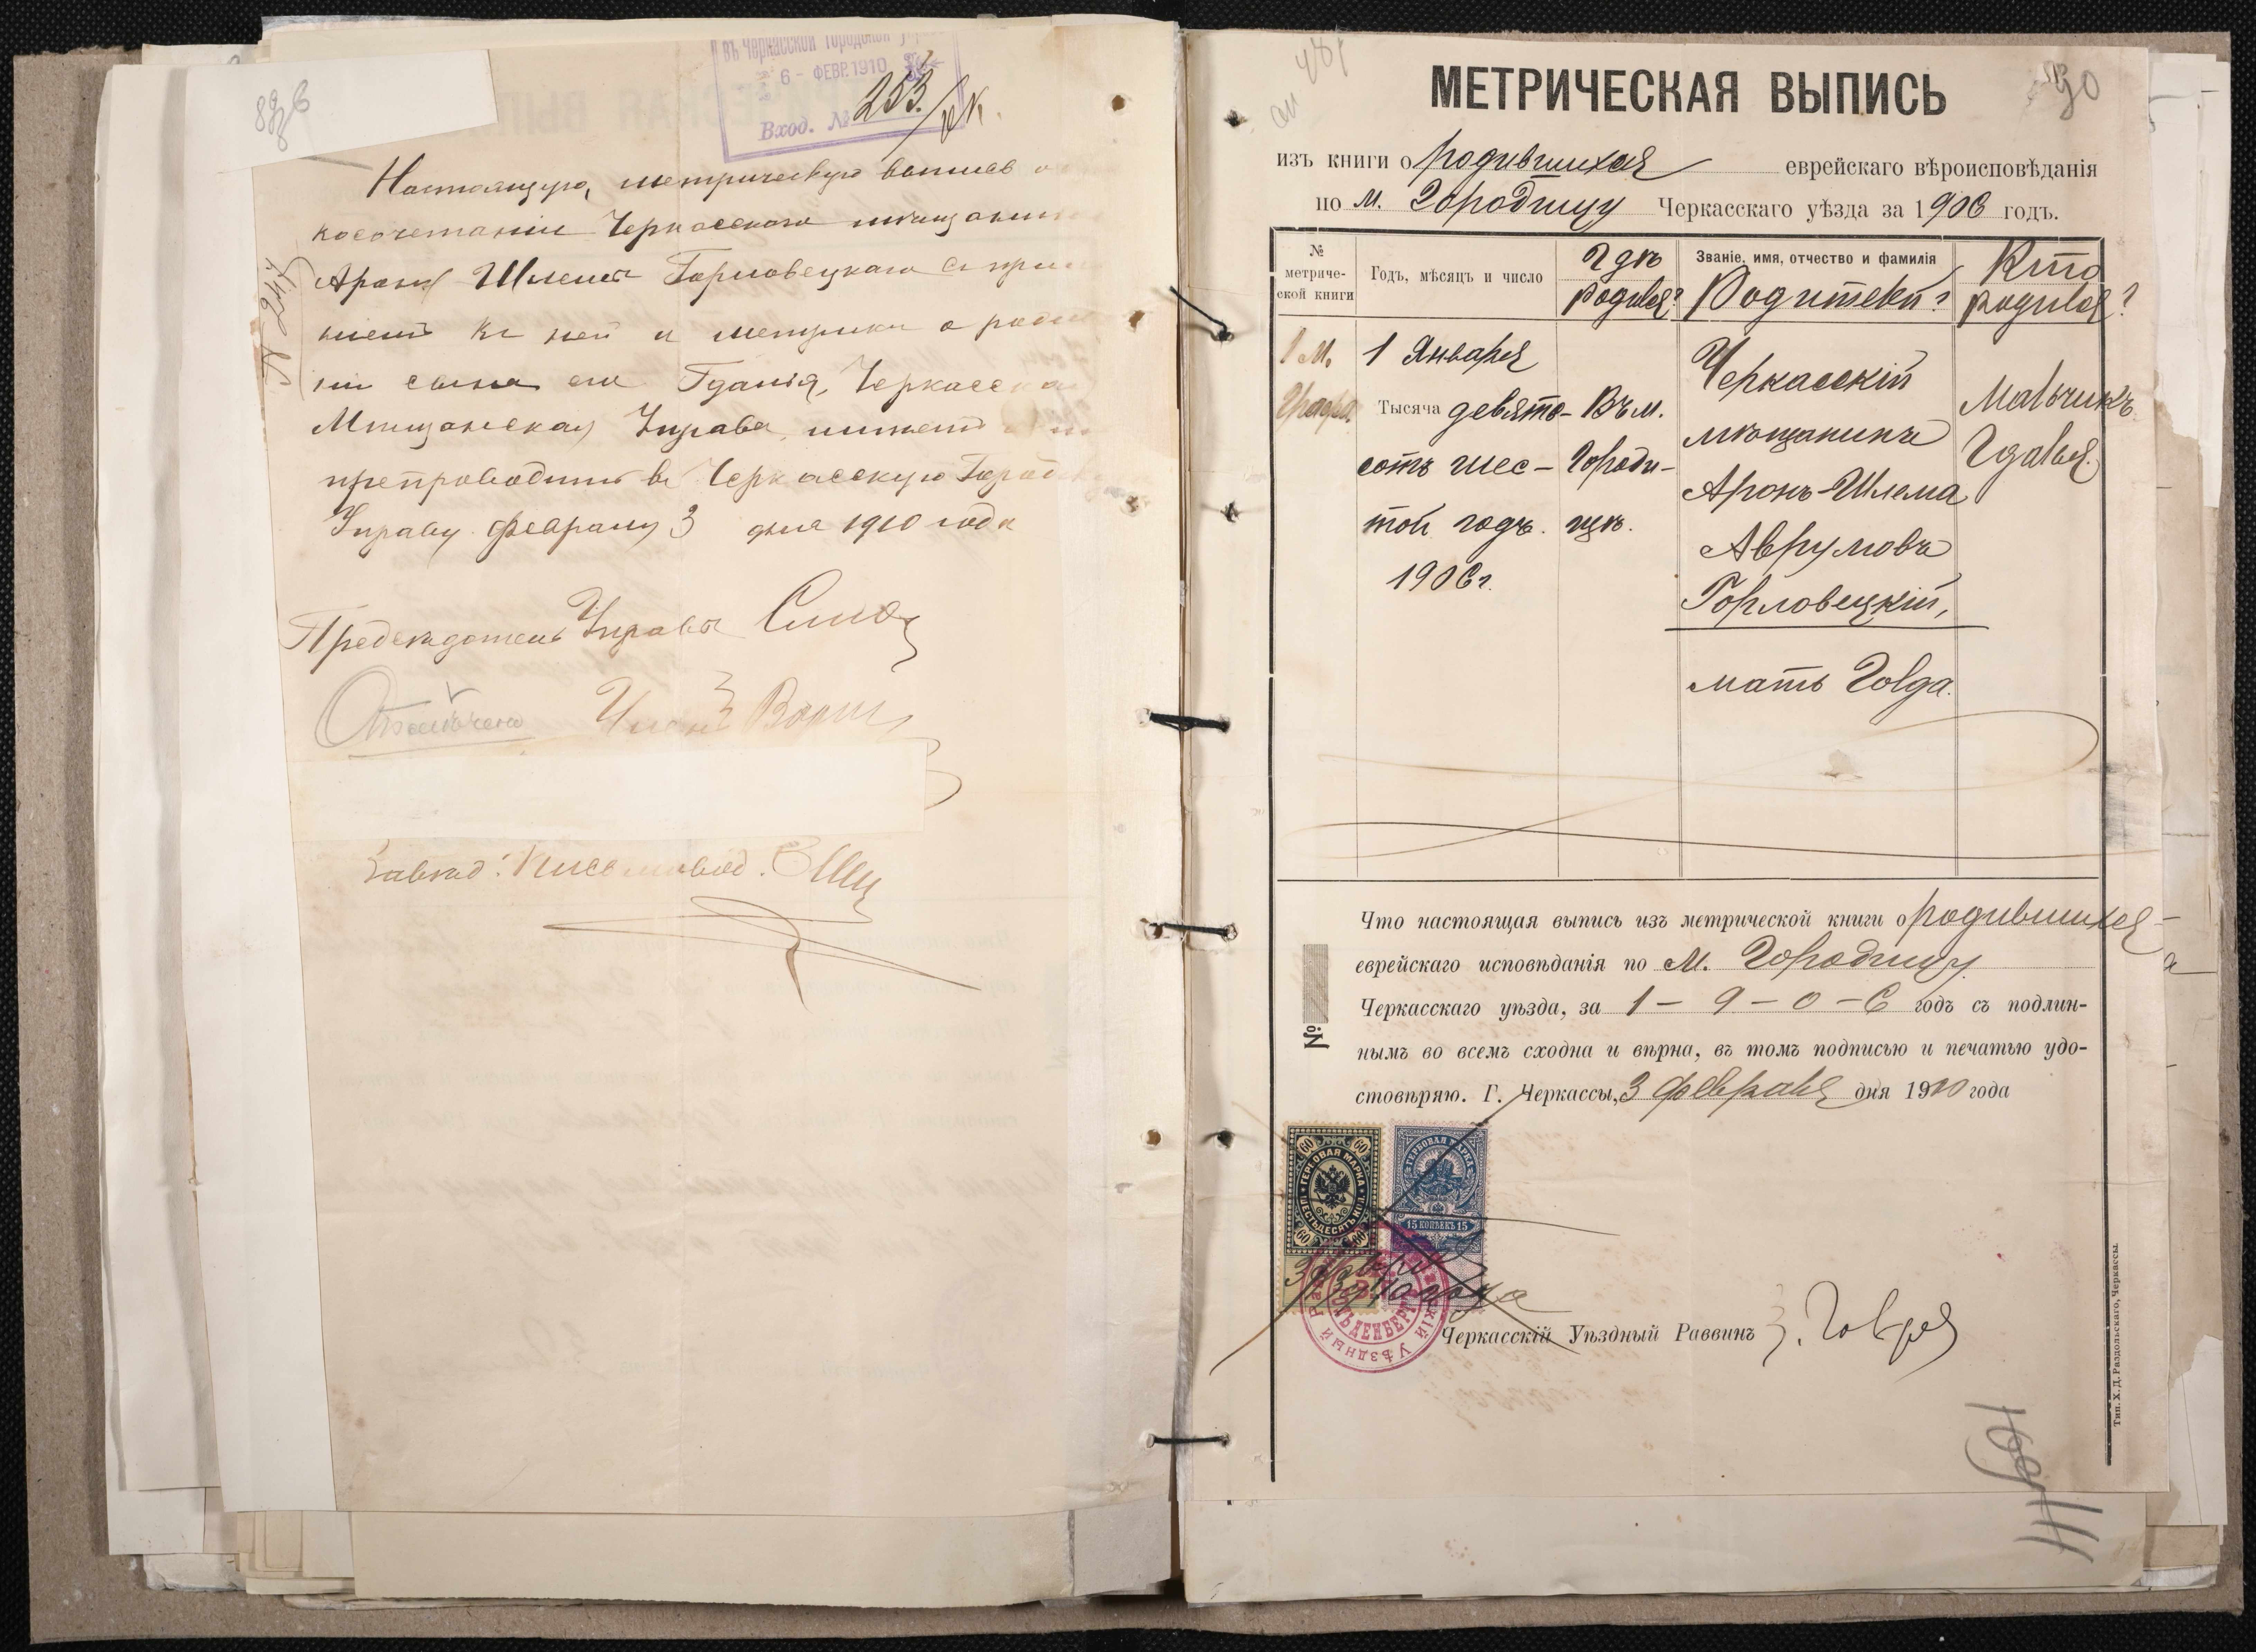 въ Черкасской Городской
6 - ФЕВР. 1910
Вход. № 253.
Настоящую, метрическую выпись о
косочетаніи Черкасскаго мѣщанина
Арона Шлемы Горловецкаго съ при
ніемъ къ ней и метрики о рожде
ніи сына его Гданія, Черкасская
Мѣщанская Управа, имѣетъ
препроводить въ Черкасскую Городск
Управу. Февраля 3 дня 1910 года
№ 247
Предсѣдатель Управы
Отмѣчено
Членъ
Завѣд. Письмовод.
МЕТРИЧЕСКАЯ ВЫПИСЬ
изъ книги о родившихся еврейскаго вѣроисповѣданія
по м. Городищу Черкасскаго уѣзда за 1906 годъ.
№ метриче-ской книги
Годъ, мѣсяцъ и число
Гдѣ родился?
Званіе, имя, отчество и фамилія Родителей?
Кто родился?
1 м.
Графа.
1 Января
Тысяча девять-
сотъ шес-
той годъ.
1906 г.
Въ м.
Городи-
щѣ.
Черкасскій
мѣщанинъ
Аронъ-Шлема
Аврумовъ
Горловецкій,
мать Голда.
Мальчикъ
Гдалья.
Что настоящая выпись изъ метрической книги о родившихся-
еврейскаго исповѣданія по м. Городищу
Черкасскаго уѣзда, за 1 - 9 - 0 - 6 годъ съ подлин-
нымъ во всемъ сходна и вѣрна, въ томъ подписью и печатью удо-
стовѣряю. Г. Черкассы, 3 февраля дня 1910 года
№
60 60
ГЕРБОВАЯ МАРКА
ШЕСТЬДЕСЯТЪ КОП.
60 60
ГЕРБОВАЯ МАРКА
15 КОПѢЕКЪ 15
3 февр
1910 года
Черкасскій Уѣздный Раввинъ
Тип. Х. Д. Раздольскаго, Черкассы.